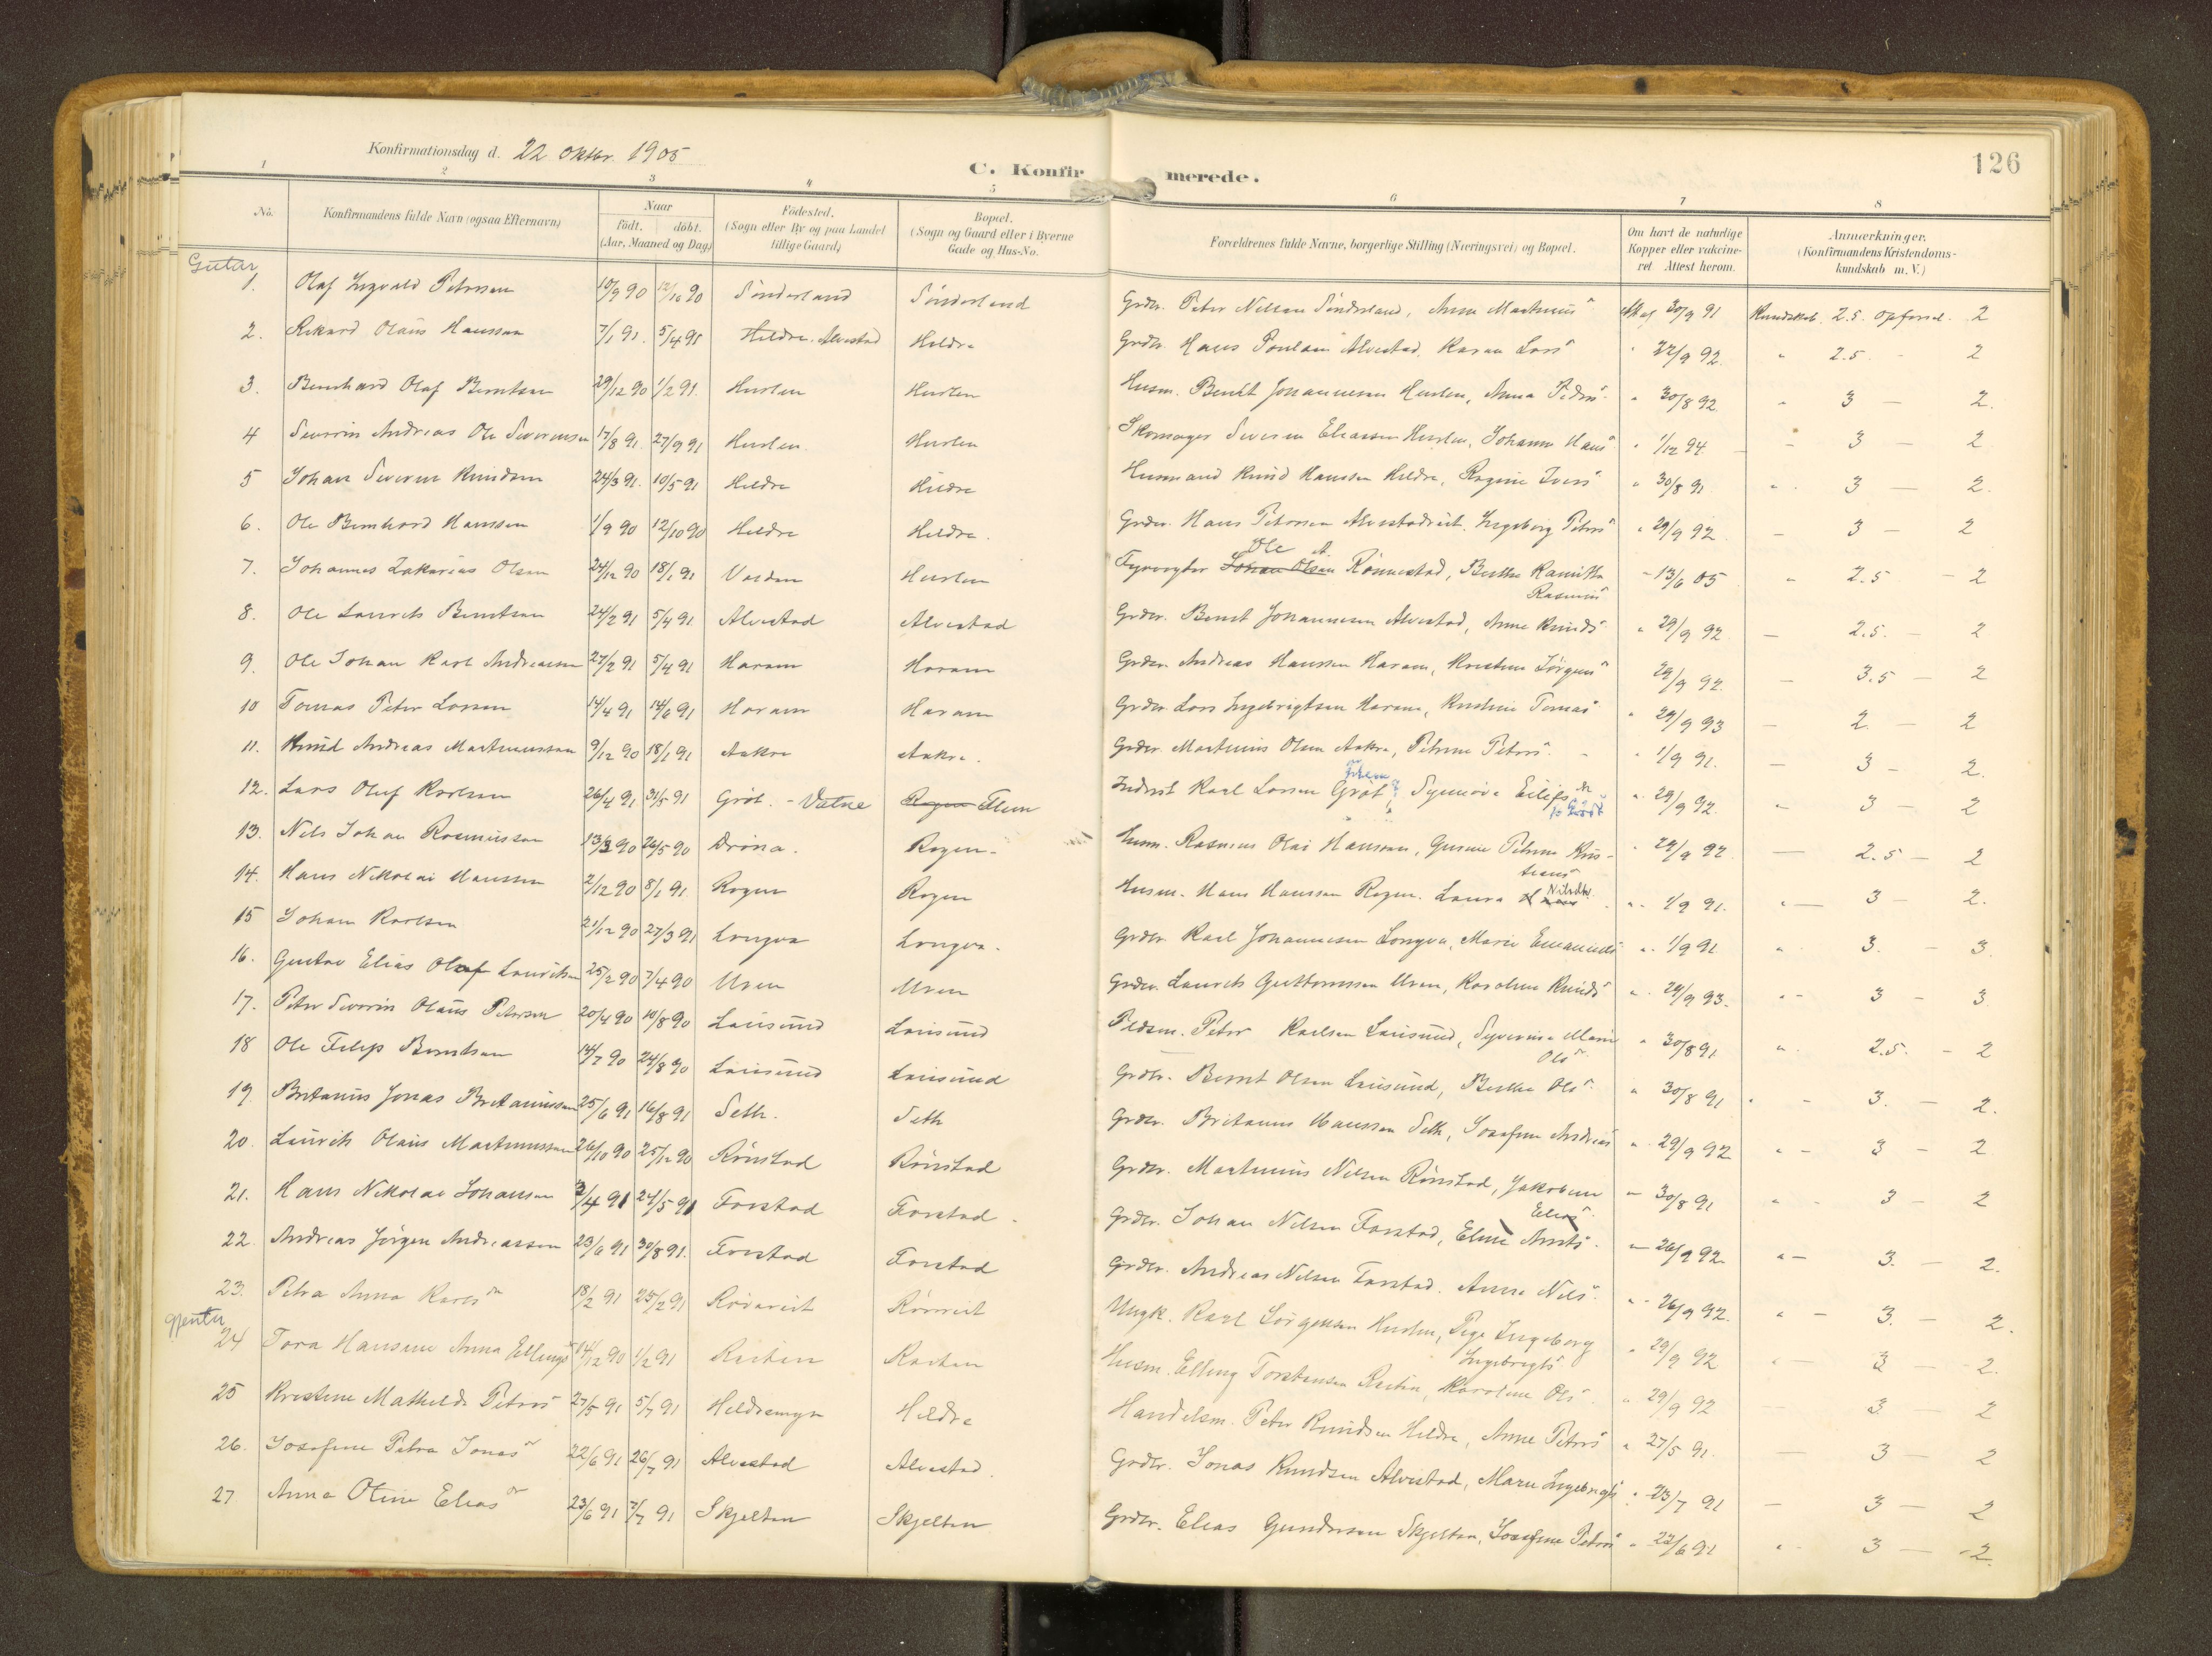 126
Konfirmationsdag d. 22 Oktbr. 1905
C. Konfirmerede.
1 2 3 4 5 6 7 8
No. | Konfirmandens fulde Navn (ogsaa Efternavn) | Naar födt. döbt. (Aar, Maaned og Dag) | Födested. (Sogn eller By og paa Landet tillige Gaard) | Bopæl. (Sogn og Gaard eller i Byerne Gade og Hus-No. | Forældrenes fulde Navne, borgerlige Stilling (Næringsvei) og Bopæl. | Om havt de naturlige Kopper eller vakcineret Attest herom. | Anmærkninger. (Konfirmandens Kristendomskundskab m. V.)
Gutar
1. Olaf Ingvald Petersen 10/9 90 12/10 90 Sönderland Sönderland Grdbr. Peter Nilsen Sönderland, Anna Martinus" 30/9 91 Kundskab 2.5. Opförsel 2
2. Rikard Olaus Hanssen 7/1 91. 5/4 91 Hildre. Alvestad Hildre Grdbr. Hans Poulsen Alvestad. Karen Lars" " 22/9 92. " 2.5 - 2
3. Bernhard Olaf Berntsen 29/12 90 1/2 91. Hurlen Hurlen Husm. Berndt Johannesen Hurlen, Anna Peders" " 30/8 92 " 3 — 2.
4 Severin Andreas Ole Severinsen 17/8 91. 27/9 91 Hurlen Hurlen Skomager Severin Eliassen Hurlen, Johanne Hans" " 1/12 94 - 3 — 2
5 Johan Severin Knudsen 24/3 91. 10/5 91 Hildre Hildre Husmand Knud Hanssen Hildre, Regine Ivers" " 30/8 91 " 3 — 2.
6. Ole Bernhard Hanssen 1/9 90 12/10 90 Hildre Hildre. Grdbr. Hans Petersen Alvestadvik. Ingeborg Peters" " 29/9 92 - 3 - 2
7. Johannes Zakarias Olsen 24/12 90 18/1 91 Vorden Hurlen Fyrvogter Johan Olsen Ole A. Rönnestad, Berthe Ranitta Rasmus" - 13/6 05 " 2.5 - 2
8. Ole Laurits Berntsen 24/2 91 5/4 91 Alvestad Alvestad Grdbr. Bernt Johannesen Alvestad, Anne Knuds" " 29/9 92 — 2.5. — 2
9. Ole Johan Karl Andreassen 27/2 91 5/4 91 Haram Haram Grdbr. Andreas Hanssen Haram, Kristine Jörgens" 29/9 92. — 3.5 — 2
10 Tomas Peter Larsen 14/4 91 14/6 91 Haram Haram Grdbr. Lars Ingebrigtsen Haram, Kristine Tomas" " 29/9 93 — 2 — 2
11. Knud Andreas Martinussen 9/12 90 18/1 91 Aakre Aakre. Grdbr. Martinus Olsen Aakre, Petrine Peters" - " 1/9 91. — 3 - 2.
12. Lars Oluf Karlsen 26/4 91 31/5 91 Gröt. - Vatne Rogne Flem Inderst Karl Larsen Gröt, Synnöve Eilifs dr " 29/9 92. " 3 - 2
13. Nils Johan Rasmussen 13/3 90 26/5 90 Dröna. Rogne. Husm. Rasmus Olai Hanssen, Gurine Petrine Kristians" " 29/9 92 — 2.5 — 2
14. Hans Nikolai Hanssen 2/12 90 8/1 91. Rogne Rogne Husm. Hans Hanssen Rogne. Laura Hans Nilsdtr. " 1/9 91. " — 3 - 2.
15 Johan Karlsen 21/12 90 27/3 91 Longva Longva. Grdbr. Karl Johannesen Longva, Marie Emanuels " 1/9 91 " 3. — 3.
16. Gustav Elias Olaf Lauritsen 25/2 90 7/4 90 Uren Uren Grdbr. Laurits Guttormsen Uren, Karoline Knuds" " 29/9 93. " - 3 - 3
17. Peter Severin Olaus Petersen 20/4 90 10/8 90 Lausund Lausund Pldsm. Peter Karlsen Lausund, Syverine Marie Ols" " 30/8 91 " 2.5. - 2
18 Ole Filip Berntsen 14/7 90 24/8 90 Lausund Lausund Grdbr. Bernt Olsen Lausund, Berthe Ols". " 30/8 91 " - 3. — 2.
19. Britanus Jonas Britanussen 25/6 91 16/8 91 Seth. Seth Grdbr. Britanus Hanssen Seth, Josefine Andreas" " 29/9 92 " - 3 - 2
20. Laurits Olaus Martinussen 26/10 90 25/12 90 Rönstad Rönstad Grdbr. Martinus Nilsen Rönstad, Jakobine Elias" " 30/8 91 " - 3 - 2
21. Hans Nikolai Johansen 3/4 91 24/5 91 Farstad Farstad. Grdbr. Johan Nilsen Farstad, Eline Knuts" — 26/9 92 " - 3. — 2.
22. Andreas Jörgen Andreassen 23/6 91 30/8 91. Farstad Farstad Grdbr. Andreas Nilsen Farstad. Anne Nils" " - 26/9 92. " - 3. — 2.
23. Petra Anna Karls dr 18/2 91 25/2 91 Rörvik Rörvik Ungk. Karl Jörgensen Hurlen, Pige Ingeborg Ingebrigts" " 29/9 92 " — 3 — 2.
Gjentur
24 Tora Hansine Anna Ellings" 14/12 90 1/2 91 Rasten Rasten Husm. Elling Torstensen Rasten, Karoline Ols" " 29/9 92 3 — 2
25 Kristine Mathilde Peters" 27/5 91 5/7 91 Hildremyr Hildre Handelsm. Peter Knudsen Hildre, Anne Peters" " 27/5 91. — 3 — 2
26. Josefine Petra Jonas dr 22/6 91 26/7 91 Alvestad Alvestad. Grdbr. Jonas Knudsen Alvestad, Maren Ingebrigts" " 23/7 91 — 3 — 2
27 Anna Oline Elias dr 23/6 91 7/7 91 Skjelten Skjelten Grdbr. Elias Gundersen Skjelten, Josefine Peters" " 22/6 91 " - 3 — 2.